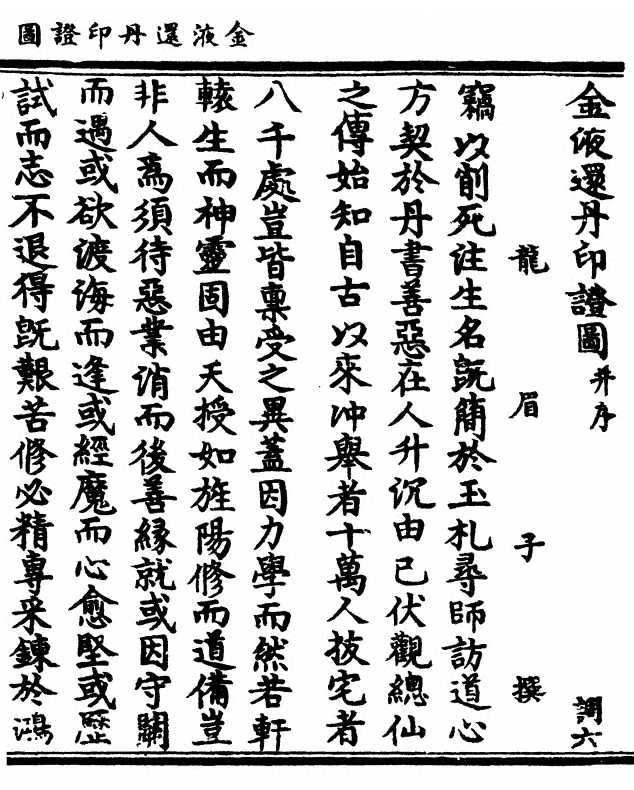 金液還丹印證圖
金液還丹印證圖并序 調六
龍眉子撰
竊以削死注生名旣簡於玉札尋師訪道心
方契於丹書善惡在人升沉由己伏觀總仙
之傳始知自古以來冲舉者十萬人拔宅者
八千處豈皆稟受之異蓋因力學而然若軒
轅生而神靈固由天授如旌陽修而道備豈
非人爲須待惡業消而後善緣就或因守關
而遇或欲渡海而逢或經魔而心愈堅或歷
試而志不退得旣艱苦修必精專采鍊於鴻